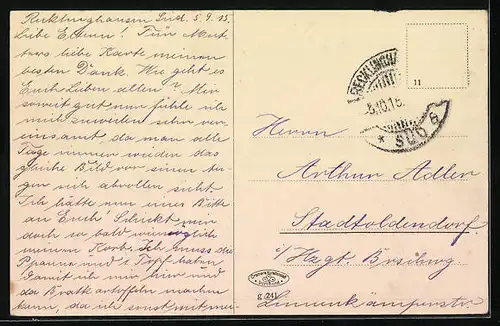 Recklinghausen Süd. 5.9.15.
Liebe Eltern! Für Mut-
ters liebe Karte meinen
besten Dank. Wie geht es
Euch Lieben allen? Mir
soweit gut nur fühle ich
mich zuweilen sehr ver-
einsamt, da man alle
Tage immer wieder das
gleiche Bild vor einen Au-
gen sich abrollen sieht
Ich hätte nun eine Bitte
an Euch! Schickt mir
doch so bald wie möglich
meinen Korb. Ich muss die
Pfanne und 1 Topf haben
damit ich mir hier und
da Bratkartoffeln machen
kann, da ich sonst mit
RECKLINGHA
5.10.15
* SÜD
11
Herrn
Arthur Adler
Stadtoldendorf.
i/Hzgt. Brschwg.
g (24)